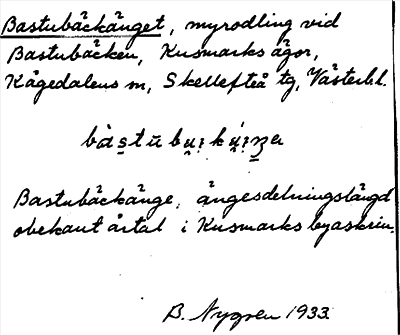 Bastubäckänget, myrodling vid
Bastubäcken, Kusmarks ägor,
Kågedalens m, Skellefteå tg, Västerb.l.
Bastubäckänge, ängesdelningslängd
obekant årtal i Kusmarks byaskrin.
B. Nygren 1933.